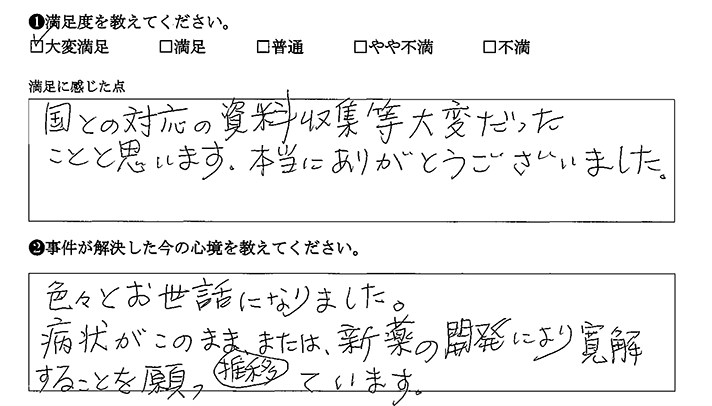 ❶満足度を教えてください。
☑大変満足 □満足 □普通 □やや不満 □不満
満足に感じた点
国との対応の資料収集等大変だった
ことと思います。本当にありがとうございました。
❷事件が解決した今の心境を教えてください。
色々とお世話になりました。
病状がこのまま、または、新薬の開発により寛解
することを願っ推移ています。